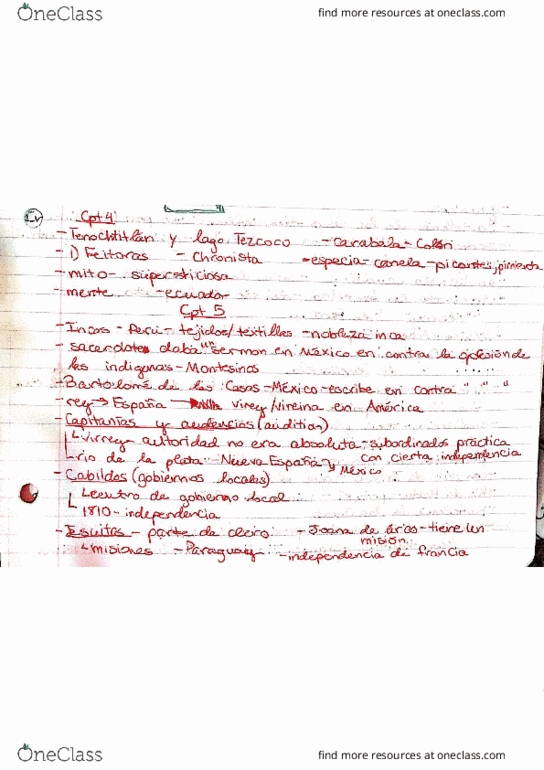 OneClass find more resources at oneclass.com
Cpt 4
- Tenochtitlán y lago Tezcoco - carabala - Colón
- 1) Feitoras - Chronista - especia - canela - picantes, pimienta
- mito - supersticiosa
- mente - ecuador
Cpt 5
- Incas - Perú - tejidos/textiles - nobleza inca
- sacerdotes daba "" sermon en México en contra la opresión de
las indigenas - Montesinos
- Bartolomé de las Casas - México - escribe en contra " " "
- rey → España → virey/vireina en América
- Capitanías y audencias (audition)
virrey - autoridad no era absoluta - subordinados práctica
con cierta independencia
- rio de la plata - Nueva España y México
- Cabildos (gobiernos locales)
centro de gobierno local
1810 - independencia
- Jesuitas - parte de clero - Joana de arcos - tiene un
misión
misiones - Paraguay - independencia de francia
OneClass find more resources at oneclass.com